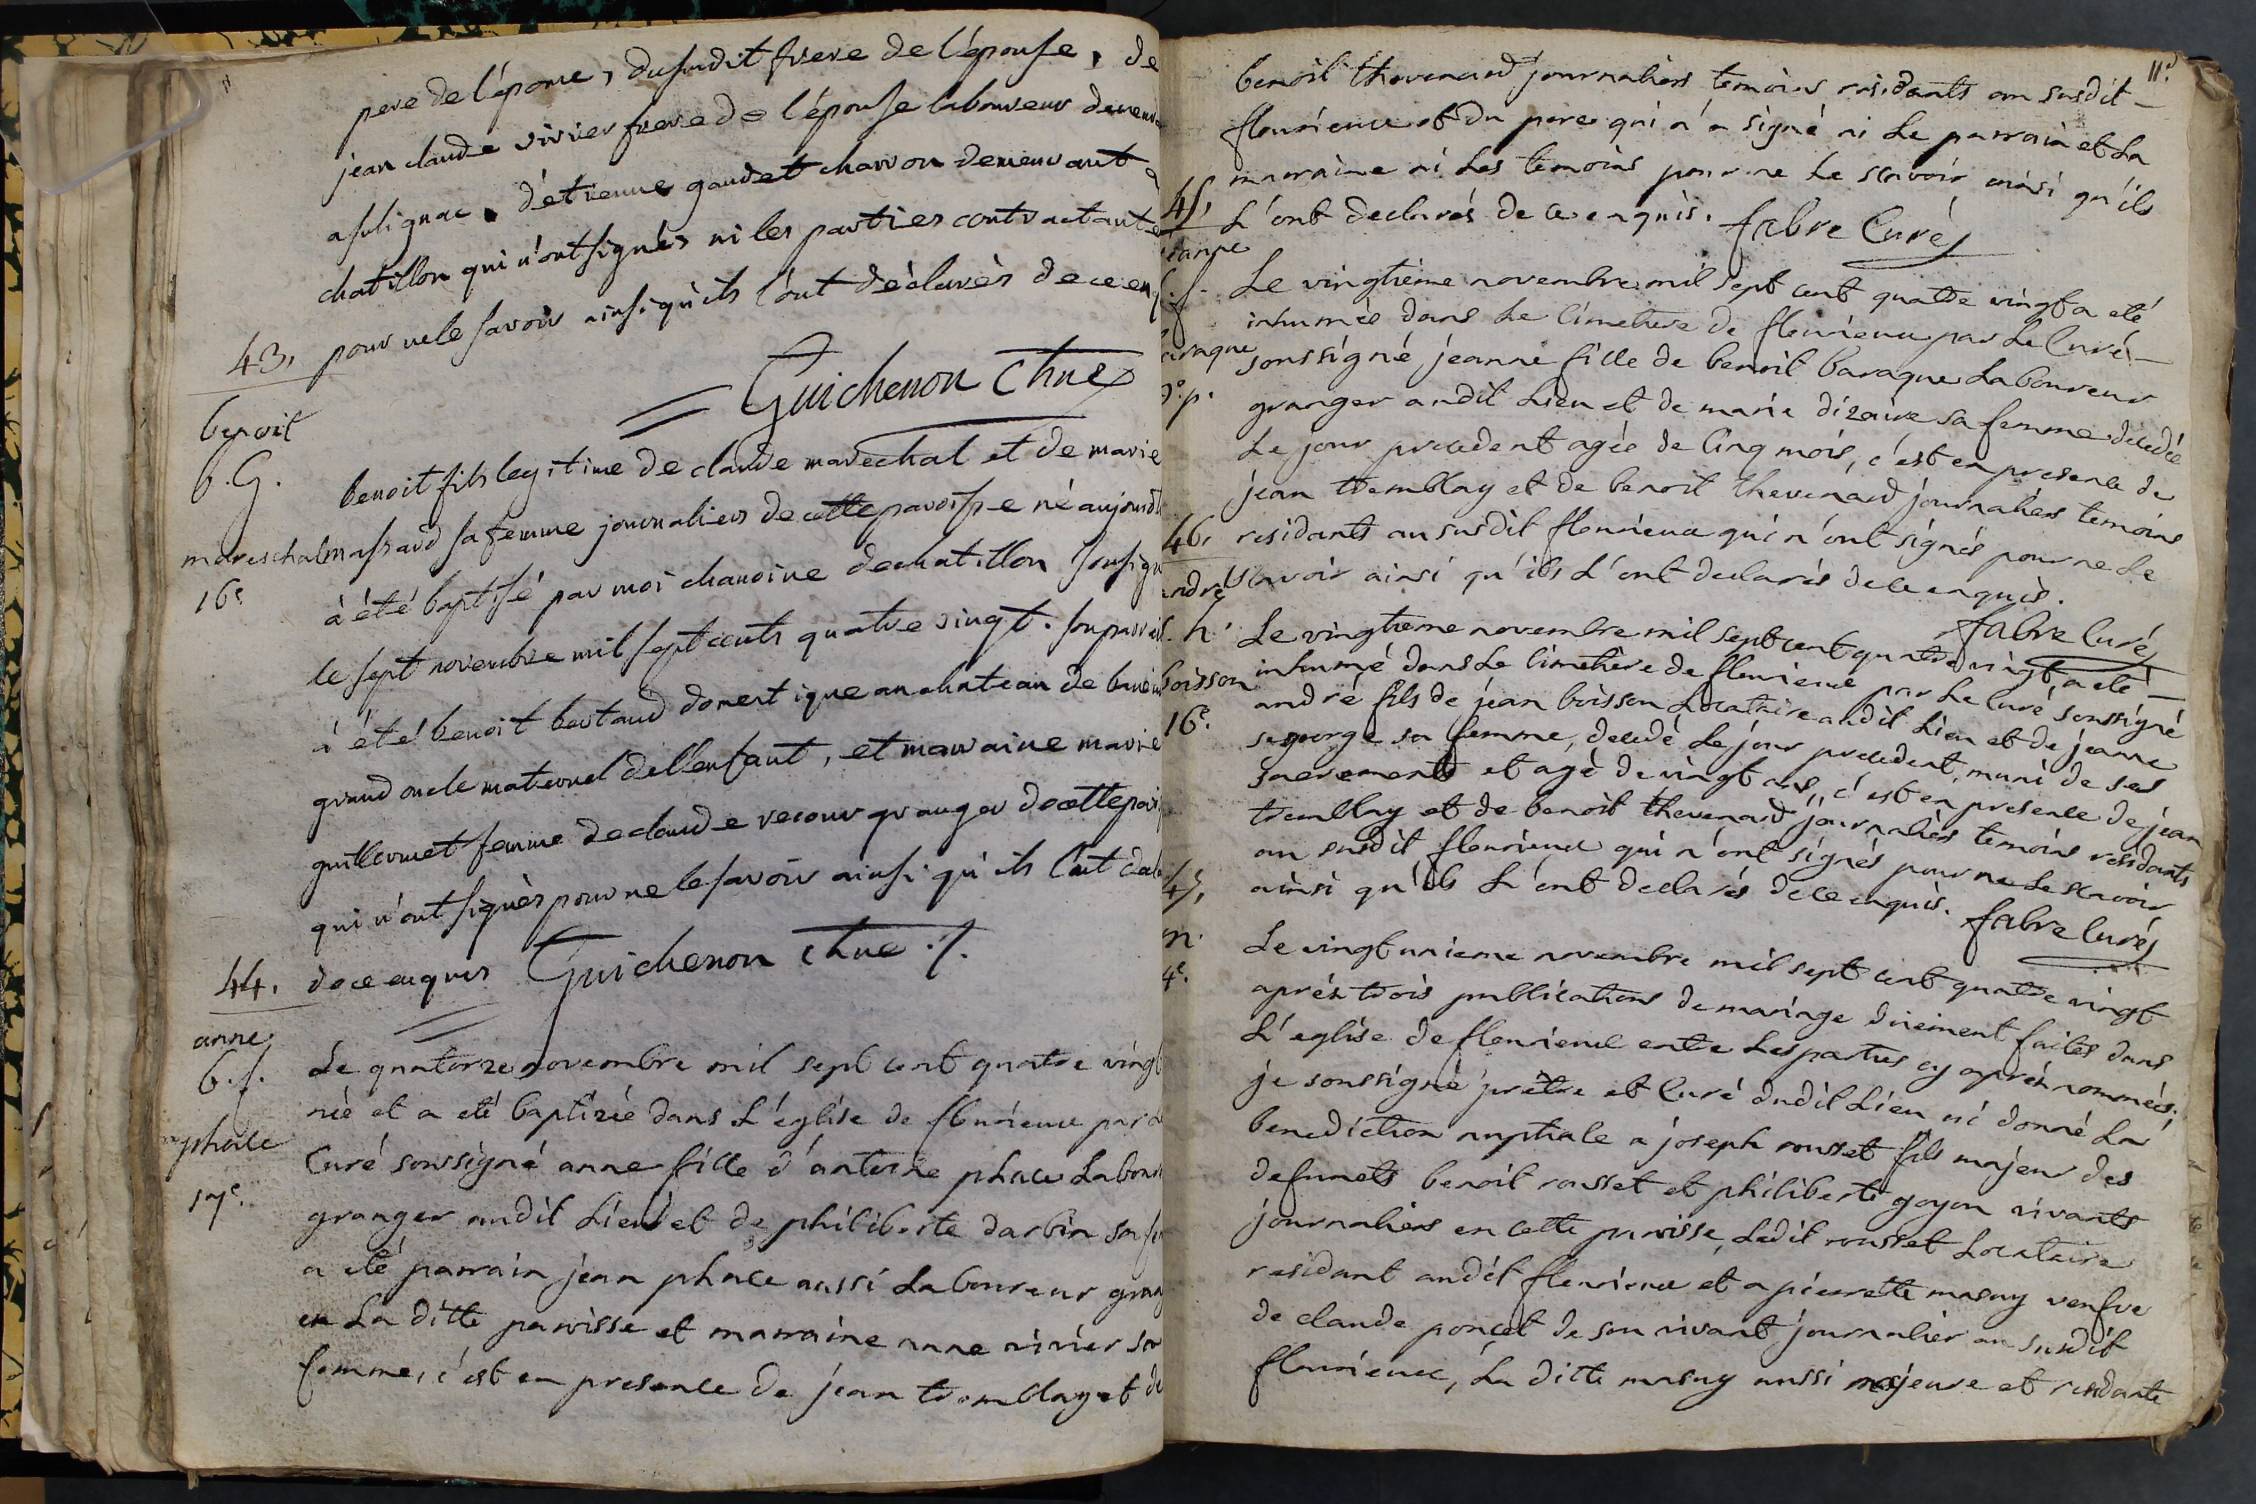 pere de l'épouse, dususdit frere de l'épouse, de
jean claude vivier frere de l'épouse laboureur demeura
a sulignac, d'étienne gaudet charron demeurant a
chatillon qui n'ont signés ni les parties contractante
43, pour ne le savoir ainsi qu'ils l'ont déclarés de ce enq
Guichenon Chne
benoit
b. G.
mareschal
16e
benoit fils legitime de claude marechal et de marie
massard sa femme journaliers de cette paroisse né aujourd'h
à été baptisé par moi chanoine de chatillon soussign
le sept novembre mil sept cents quatre vingt. son parrain
à été benoit bertaud domestique au chateau de
grand oncle maternel de l'enfant, et marraine marie
guillermet femme de claude recour granger de cette paroi
qui n'ont signés pour ne le savoir ainsi qu'ils l'ont decla
44, de ce enquis Guichenon Chne
anne
b. f.
phale
17e
Le quatorze novembre mil sept cent quatre vingt
née et a eté baptizée dans L'église de flurieux par L
Curé soussigné anne fille d'antoine phale Labour
granger audit Lieu et de philiberte darbin sa fe
a eté parrain jean phale aussi Laboureur gran
en La ditte paroisse et marraine anne vivier sa
femme, c'est en presence de jean tremblay et de
11e
benoit thevenard journaliers temoins residants au susdit
fleurieux et du pere qui n'a signé ni Le parrain et La
marraine ni Les temoins pour ne Le scavoir ainsi qu'ils
L'ont declarés de ce enquis. fabre Curé
45,
eanne
. f.
araque
Le vingtieme novembre mil sept cent quatre vingt a eté
inhumée dans Le Cimetiere de fleurieux par Le Curé
soussigné jeanne fille de benoit baraque Laboureur
granger audit Lieu et de marie dizaire sa femme decedée
Le jour precedent agée de Cinq mois, c'est en presence de
jean tremblay et de benoit thevenard journaliers temoins
residants au susdit fleurieux qui n'ont signés pour ne Le
scavoir ainsi qu'ils L'ont declarés de ce enquis.
fabre Curé
46,
andré
. h.
boisson
16e.
Le vingtieme novembre mil sept cent quatre vingt, a eté
inhumé dans Le Cimetière de fleurieux par Le Curé soussigné
andré fils de jean boisson Locataire audit Lieu et de jeanne
sa femme, decedé Le jour precedent, muni de ses
sacrements et agé de vingt ans, c'est en presence de jean
tremblay et de benoit thevenard journaliers temoins residants
au susdit fleurieux qui n'ont signés pour ne Le scavoir
ainsi qu'ils L'ont declarés de ce enquis. fabre Curé
47,
m.
4e.
Le vingt unieme novembre mil sept cent quatre vingt
aprés trois publications de mariage duement faites dans
L'eglise de fleurieux entre Les parties cy aprés nommées;
je soussigné prètre et Curé dudit Lieu ai donné La
benediction nuptiale a joseph rousset fils majeur des
defunets benoit rousset et philiberte goyon vivants
journaliers en cette paroisse, Ledit rousset Locataire
residant audit fleurieux et a pierrette masuy veufve
de claude poncet de son vivant journalier au susdit
fleurieux, La ditte masuy aussi majeure et residante